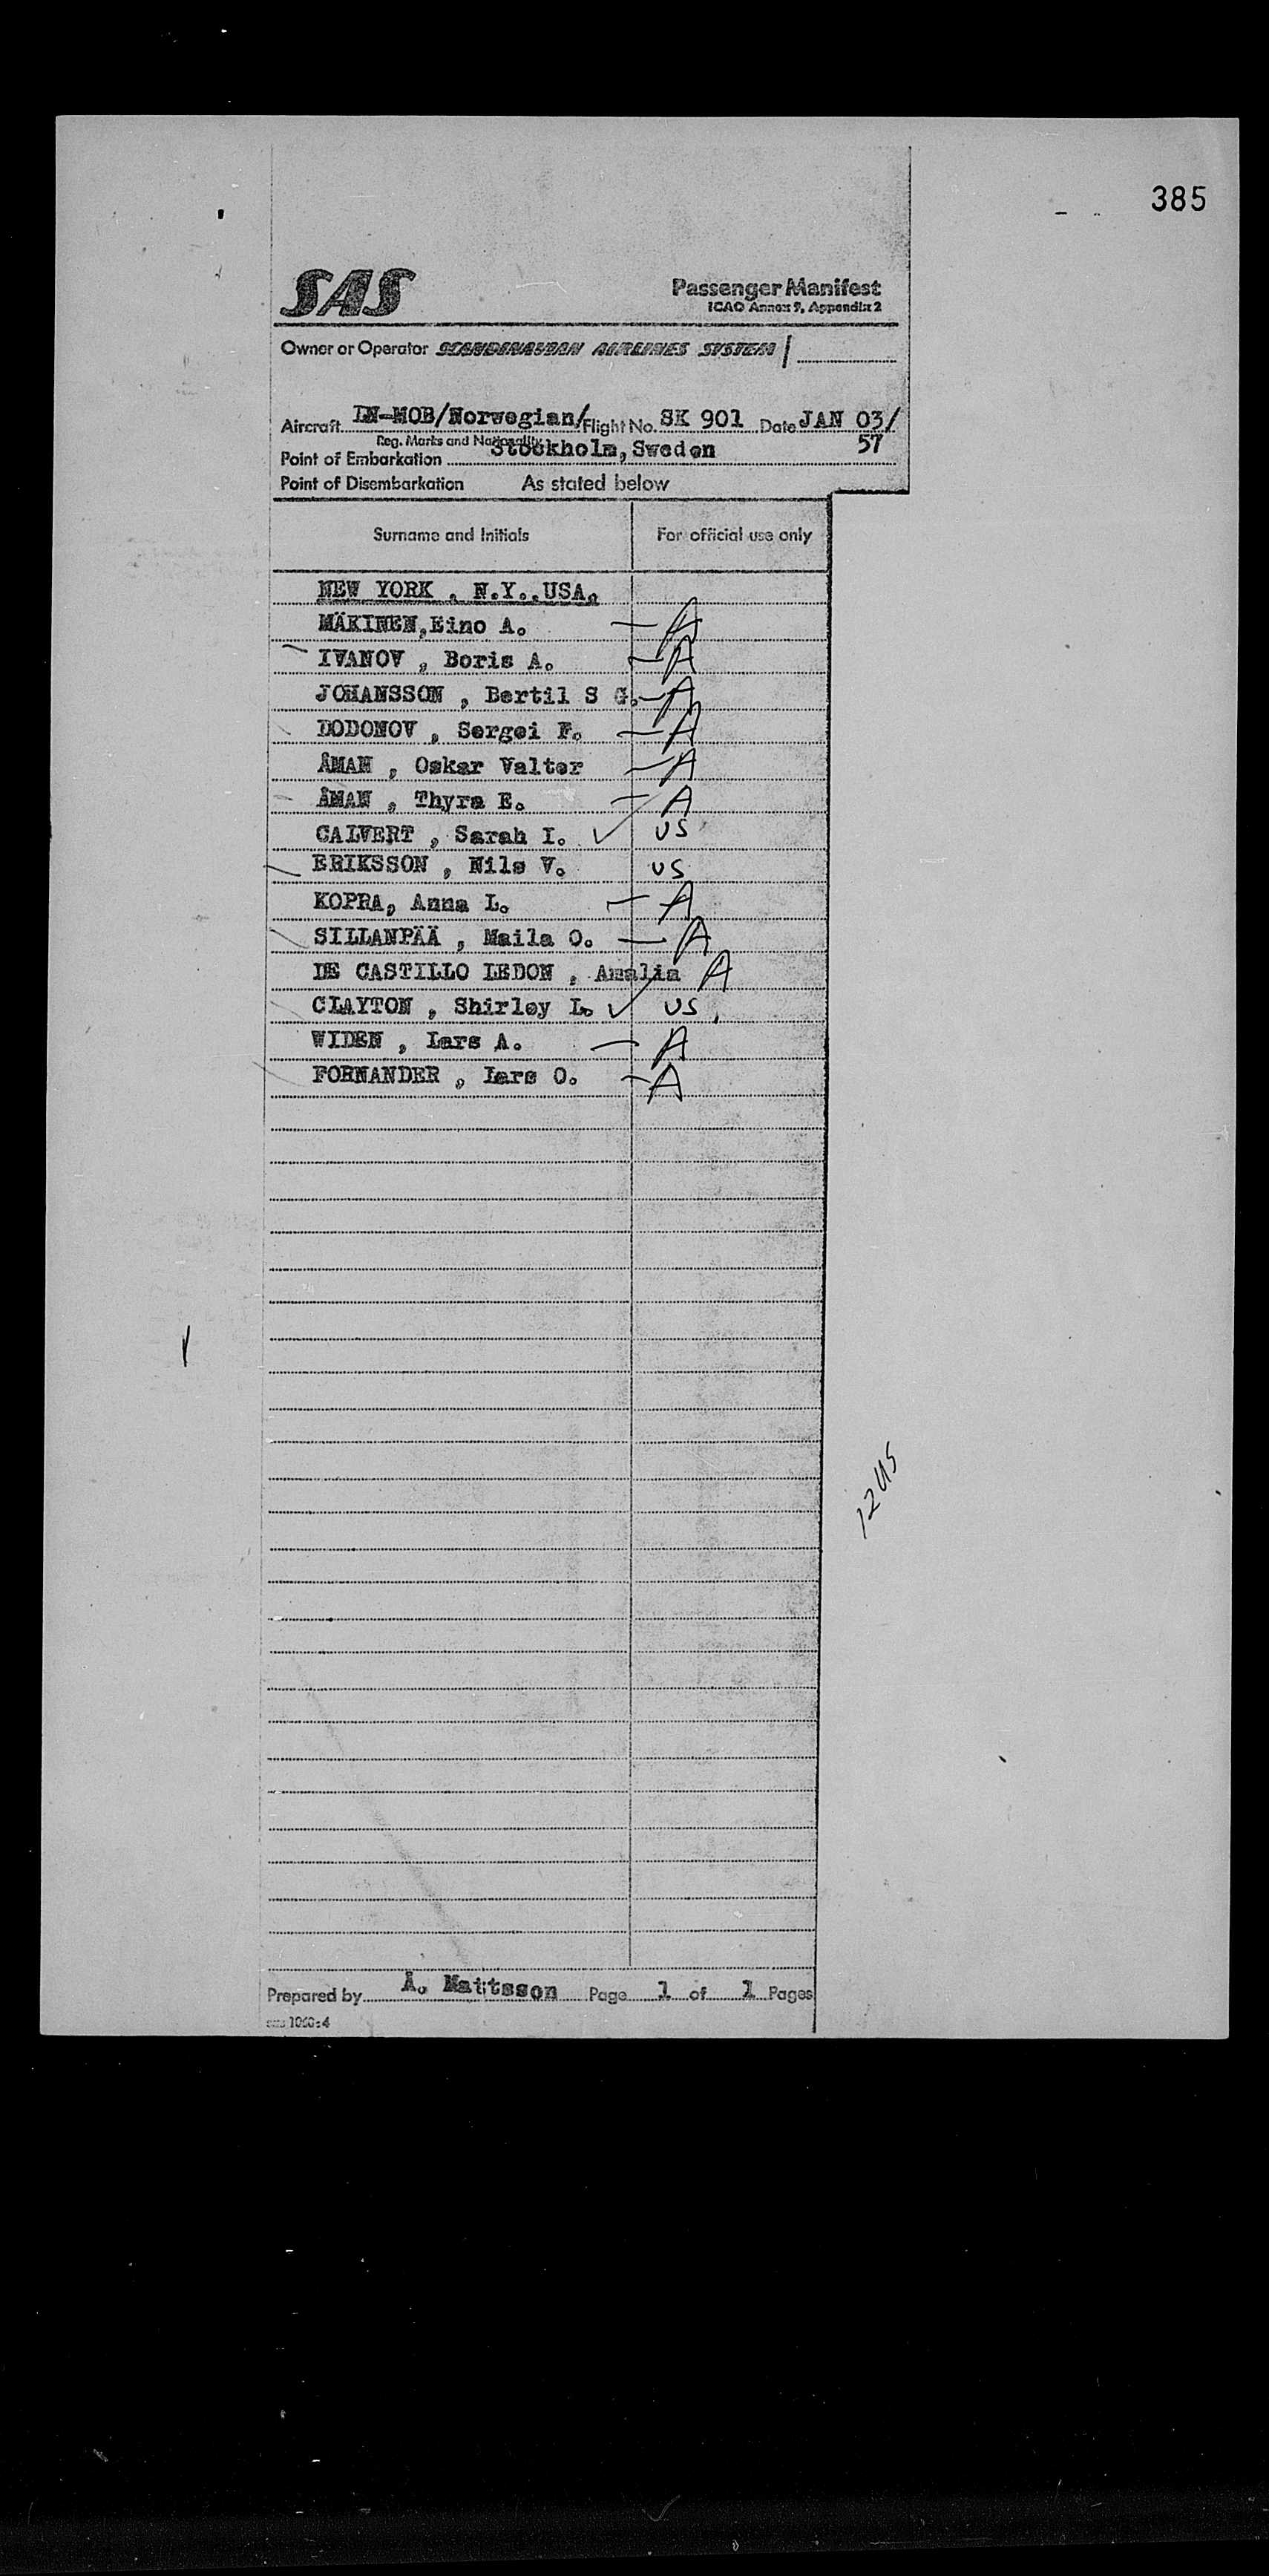 385
SAS
Passenger Manifest
ICAO Annex 9, Appendix 2
Owner or Operator SCANDINAVIAN AIRLINES SYSTEM
Aircraft LN-MOB/Norwegian/ Flight No. SK 901 Date JAN 03/
57
Reg. Marks and Nationality
Point of Embarkation Stockholm, Sweden
Point of Disembarkation As stated below
Surname and Initials For official use only
NEW YORK , N.Y., USA.
MÄKINEN, Eino A. — A
IVANOV , Boris A. — A
JOHANSSON , Bertil S G. — A
DODONOV , Sergei F. — A
ÅMAN , Oskar Valter — A
ÅMAN , Thyra E. — A
CALVERT , Sarah I. ✓ US
ERIKSSON , Nils V. US
KOPRA, Anna L. — A
SILLANPÄÄ , Maila O. — A
DE CASTILLO LEDON , Amalia A
CLAYTON , Shirley L. ✓ US
WIDEN , Lars A. — A
FORNANDER , Lars O. — A
12US
Prepared by Å. Mattsson Page 1 of 1 Pages
1060:4